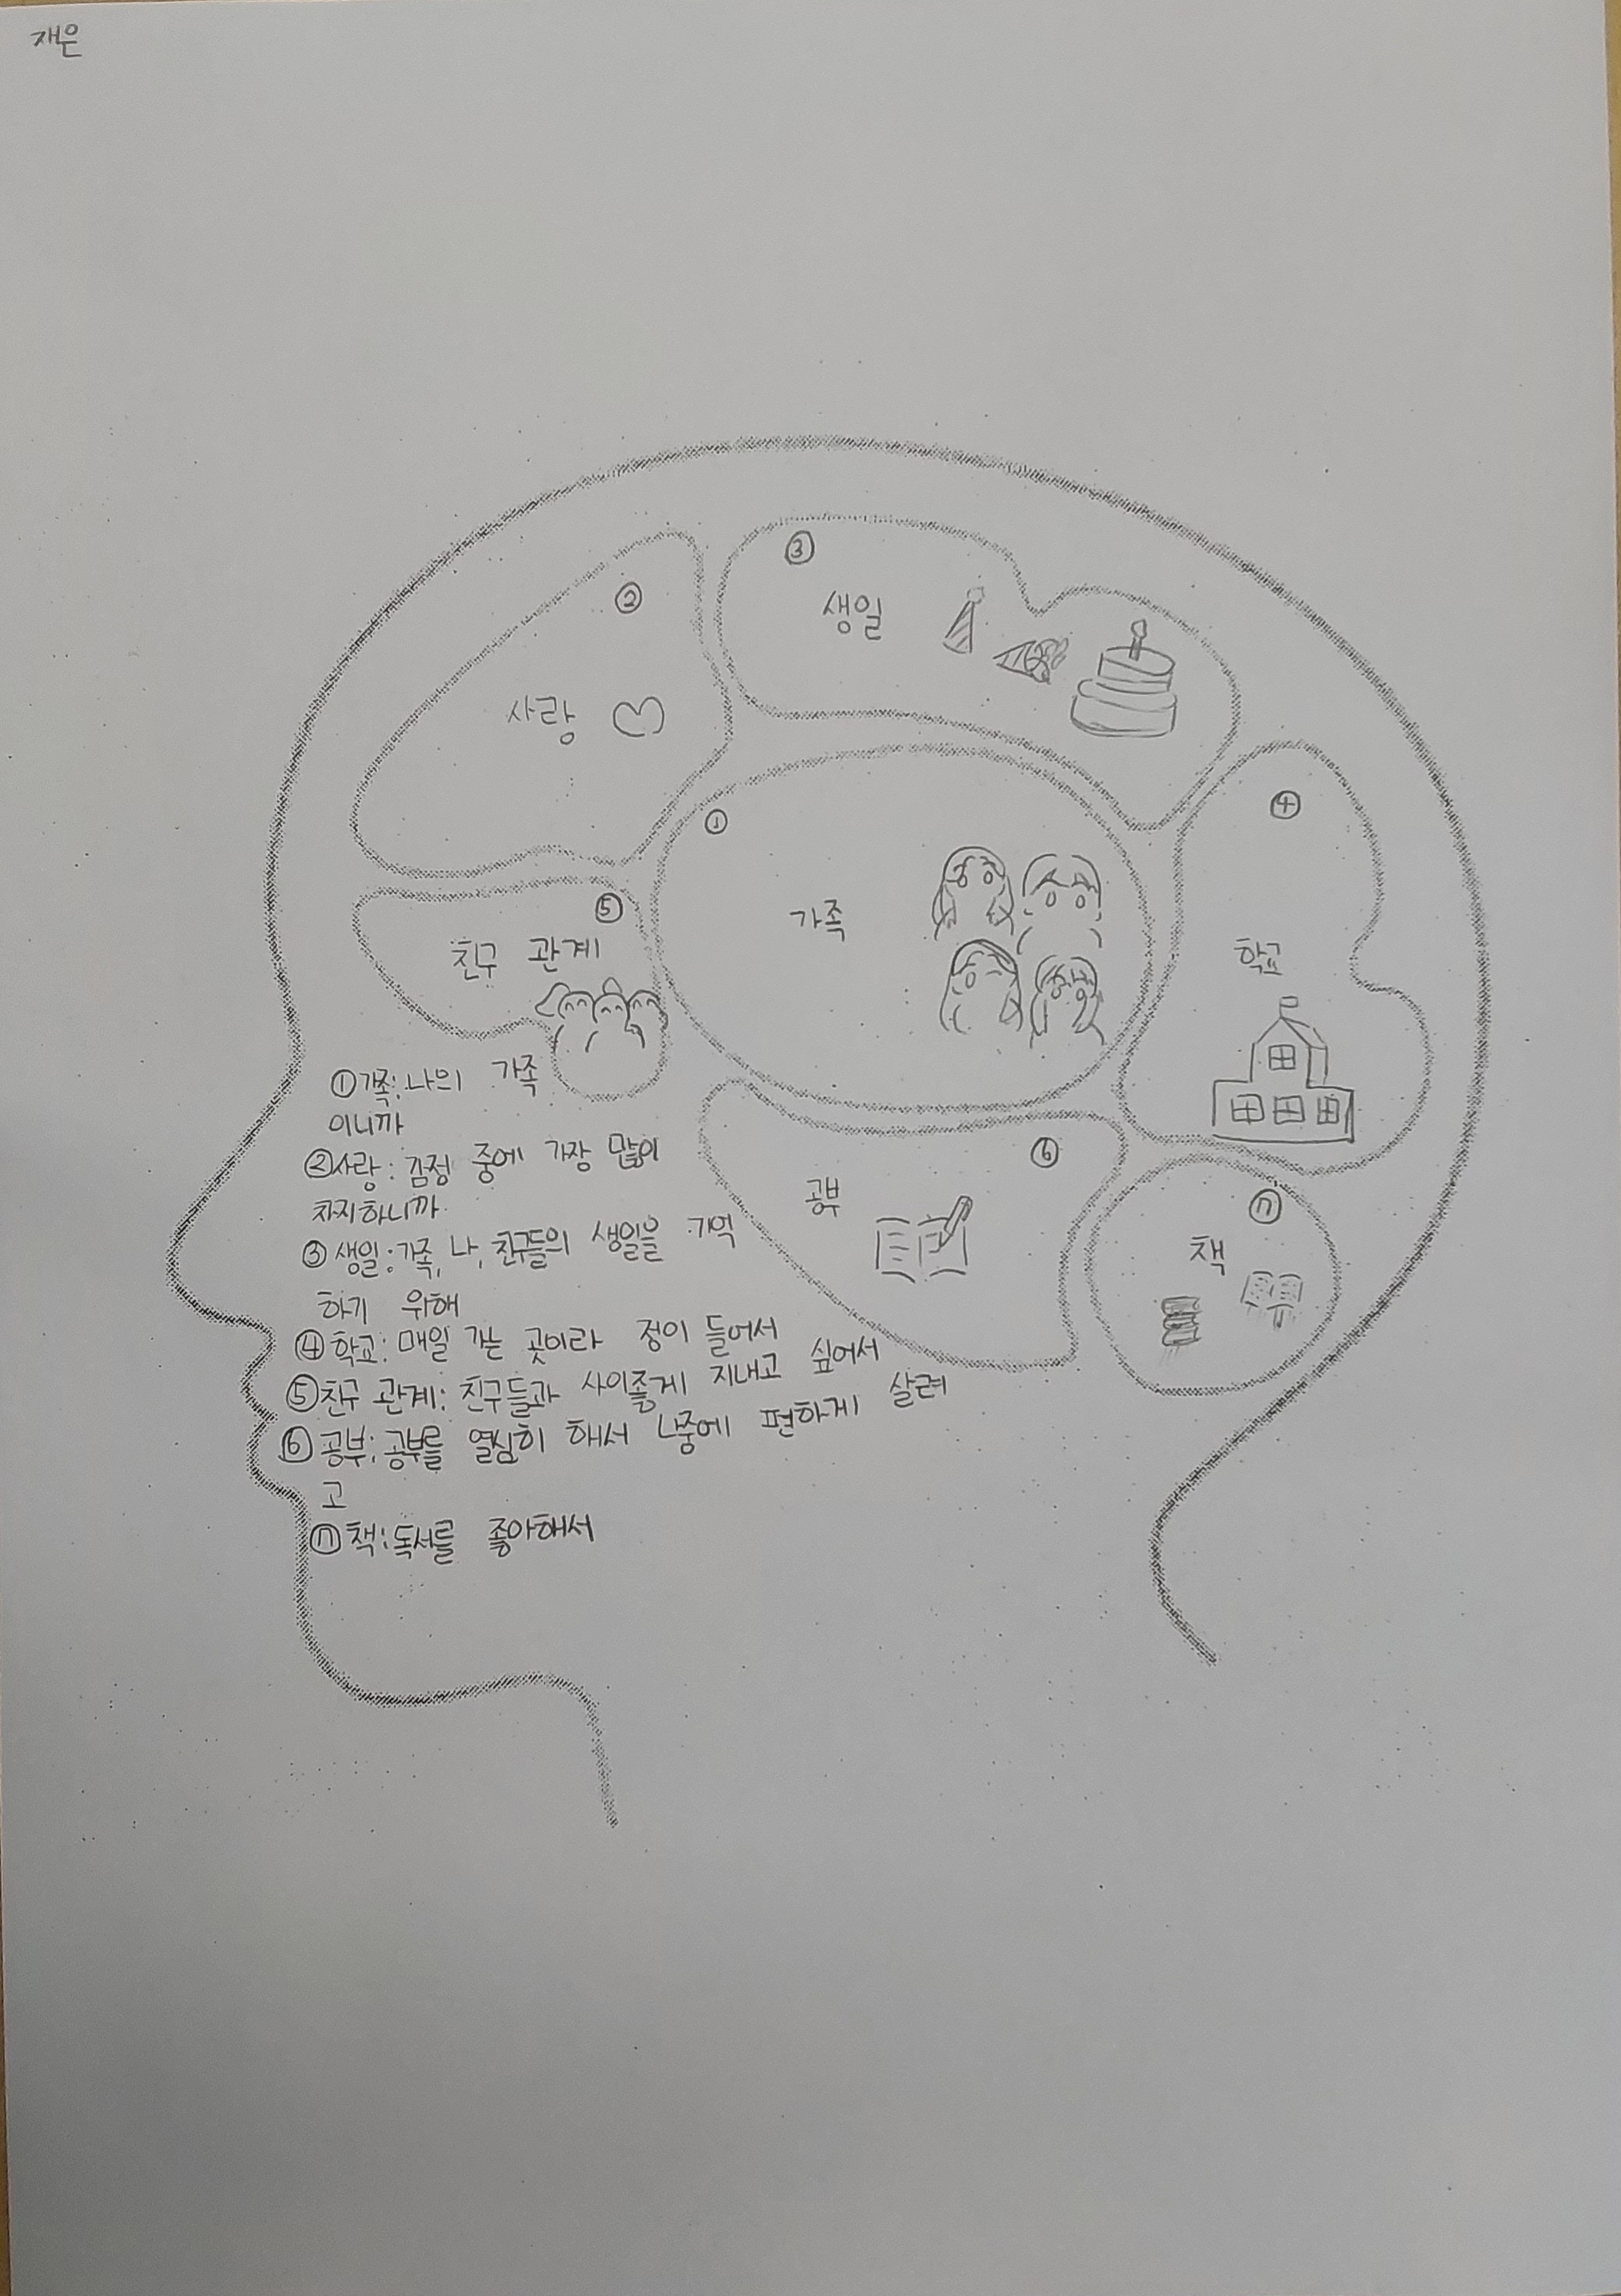 재은
③
생일
②
사랑
①
가족
④
학교
⑤
친구 관계
⑥
공부
⑦
책
①가족: 나의 가족
이니까
②사랑: 감정 중에 가장 많이
차지하니까
③생일: 가족, 나, 친구들의 생일을 기억
하기 위해
④학교: 매일 가는 곳이라 정이 들어서
⑤친구 관계: 친구들과 사이좋게 지내고 싶어서
⑥공부: 공부를 열심히 해서 나중에 편하게 살려
고
⑦책: 독서를 좋아해서